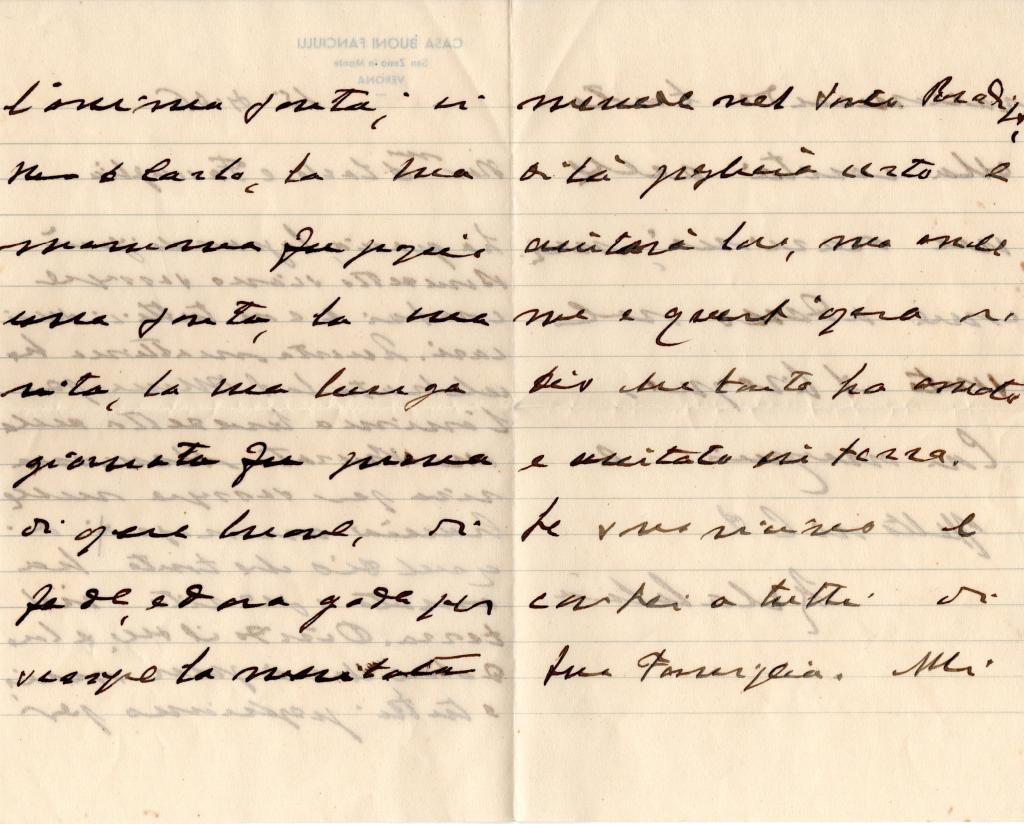 CASA BUONI FANCIULLI
San Zeno in Monte
VERONA
l'anima santa; sì
Carlo, la sua
mamma fu proprio
una santa, la sua
vita, la sua lunga
giornata fu piena
di opere buone, di
fede, ed ora gode per
sempre la meritata
mercede nel santo Paradiso;
di là pregherà certo e
aiuterà lei, ma anche
me e quest'opera di
Dio che tanto ha amato
e aiutato in terra.
Le sono vicino e
con lei a tutti di
sua Famiglia. Mi